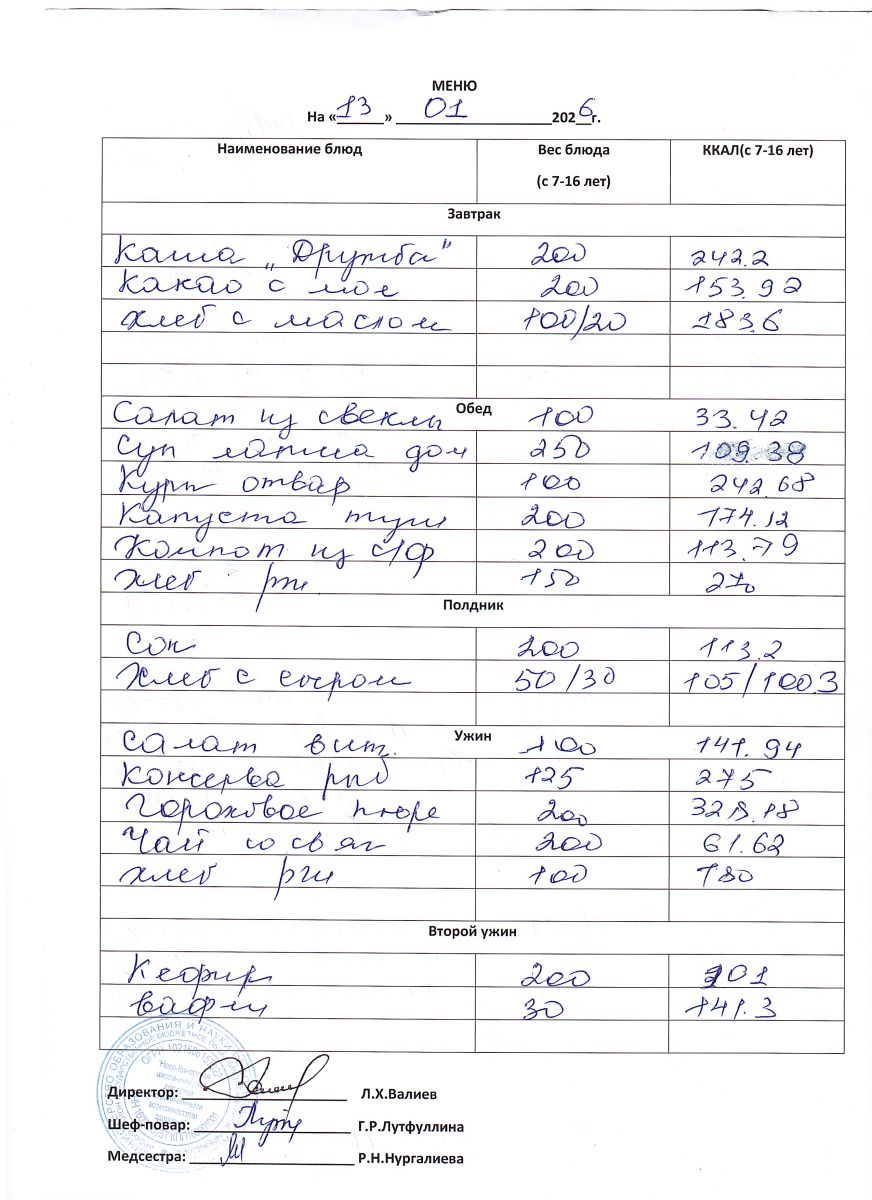 МЕНЮ
На «13» 01 2026г.
Наименование блюд Вес блюда (с 7-16 лет) ККАЛ(с 7-16 лет)
Завтрак
Каша „Дружба" 200 242.2
Какао с мол 200 153.92
Хлеб с маслом 100/20 183.6
Обед
Салат из свеклы 100 33.42
Суп лапша дом 250 109.38
Куры отвар 100 242.68
Капуста туш 200 174.12
Компот из с/ф 200 113.79
Хлеб рж. 150 270
Полдник
Сок 200 113.2
Хлеб с сыром 50/30 105/100.3
Ужин
Салат вит. 100 141.94
Консерва рыб 125 275
Гороховое пюре 200 328.18
Чай со 200 61.62
хлеб рги 100 180
Второй ужин
Кефир 200 101
вафли 30 141.3
Директор: Л.Х.Валиев
Шеф-повар: Г.Р.Лутфуллина
Медсестра: Р.Н.Нургалиева